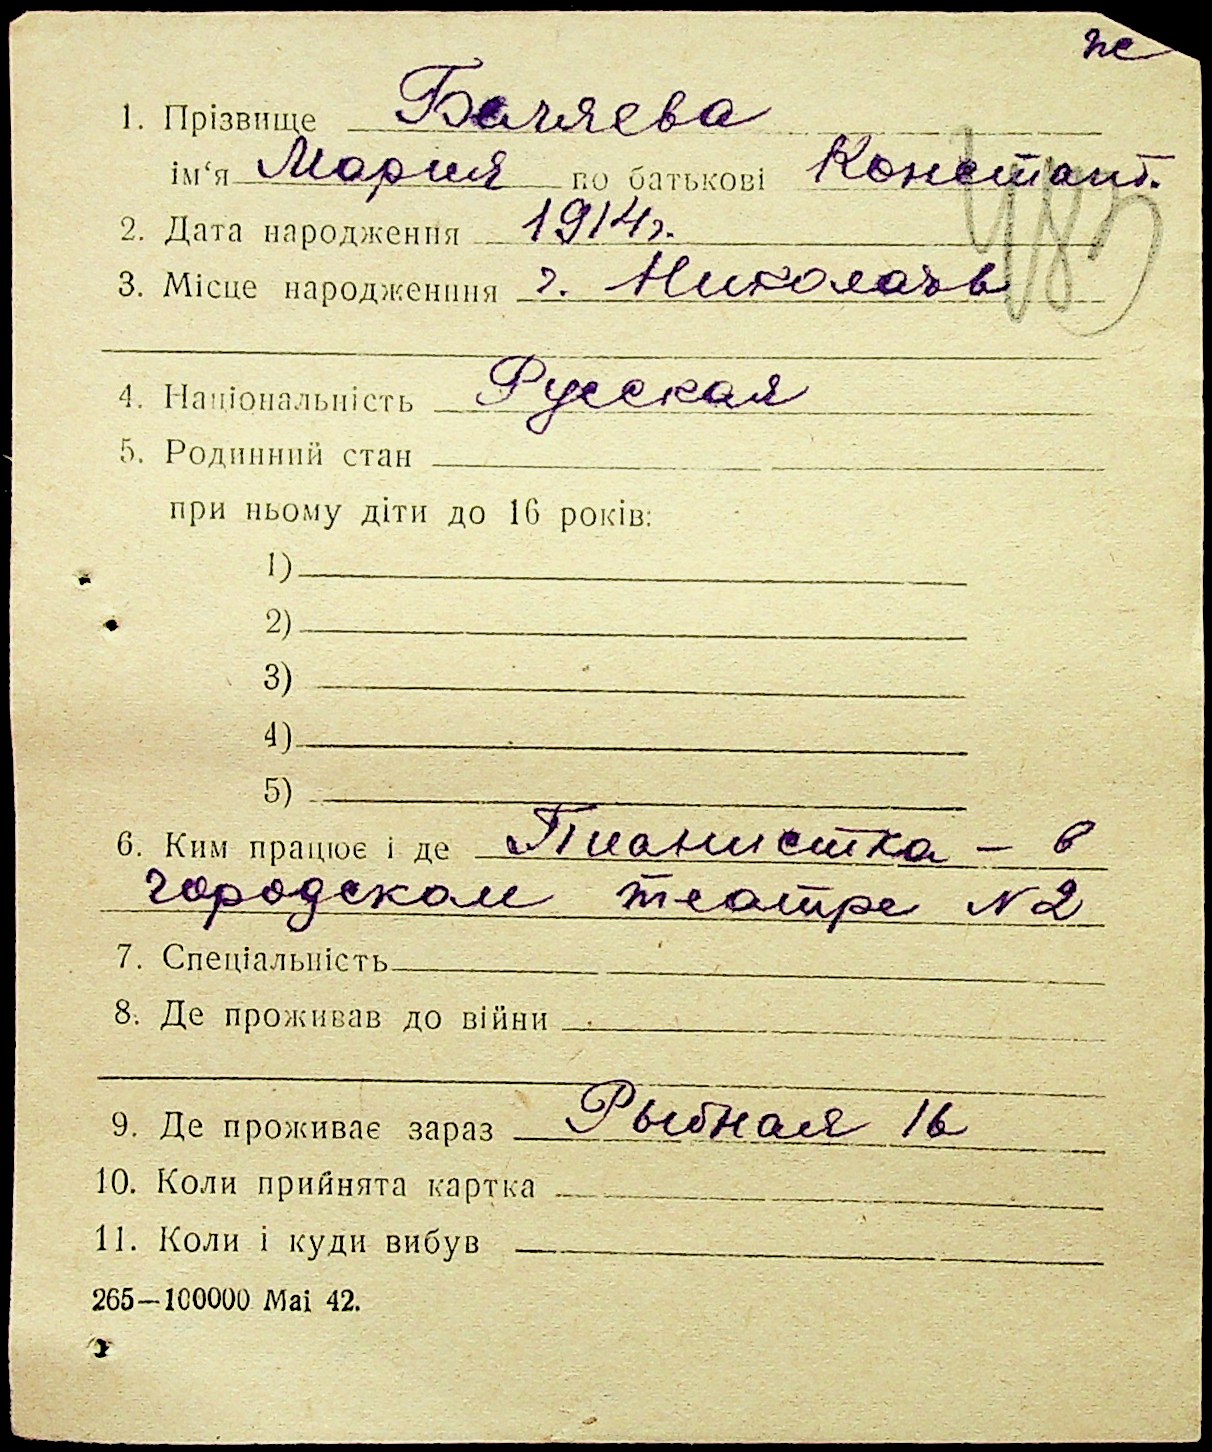 же
1. Прізвище
ім‘я Мария по батькові Констант.
2. Дата народження 1914 г.
483
3. Місце народженння г. Николаев
4. Національність Русская
5. Родинний стан
при ньому діти до 16 років:
1)
2)
3)
4)
5)
6. Ким працює і де Пианистка – в
городском театре N 2
7. Спеціальність
8. Де проживав до війни
9. Де проживає зараз Рыбная 16
10. Коли прийнята картка
11. Коли і куди вибув
265—100000 Mai 42.